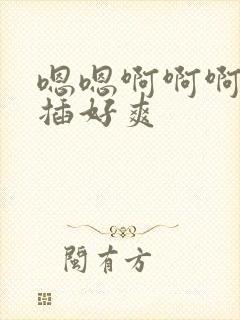 嗯嗯啊啊啊
插好爽
闽有方